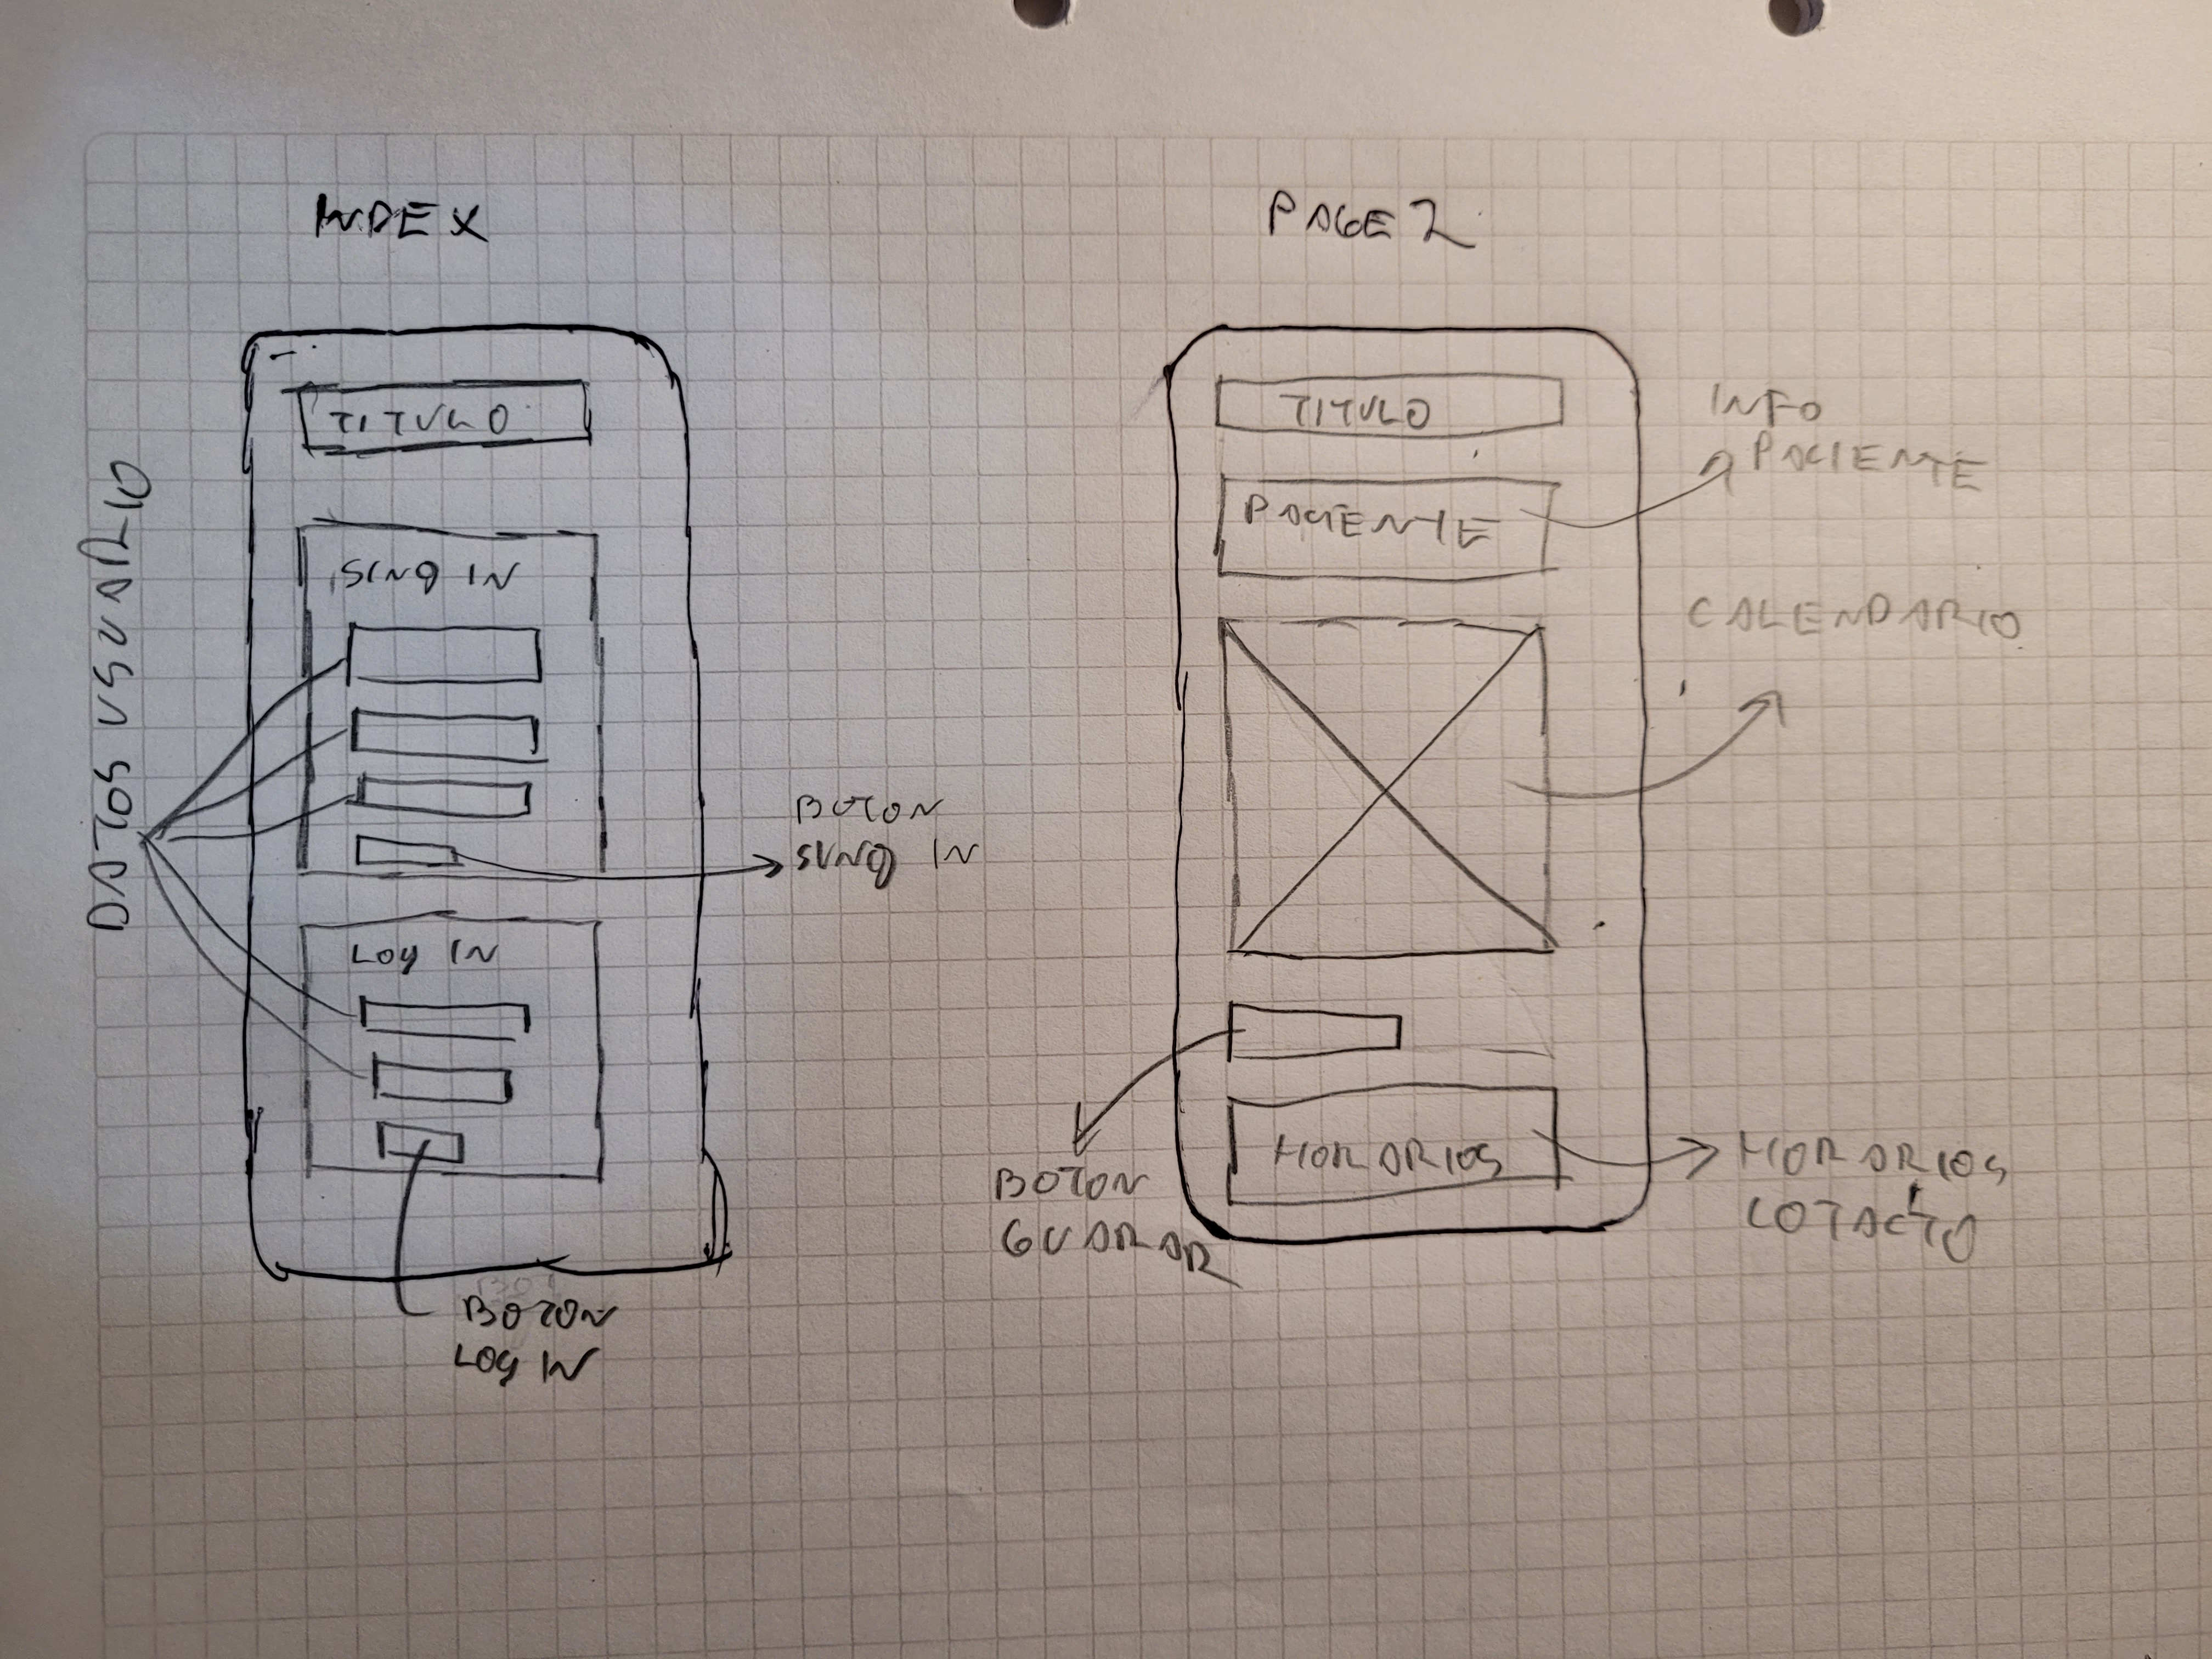 INDEX
TITULO
SINg IN
BOTON
SINg IN
LOg IN
BOTON
LOg IN
DATOS USUARIO
PAGE 2
TITULO
PACIENTE
INFO
PACIENTE
CALENDARIO
BOTON
GUARAR
HORARIOS
HORARIOS
COTACTO